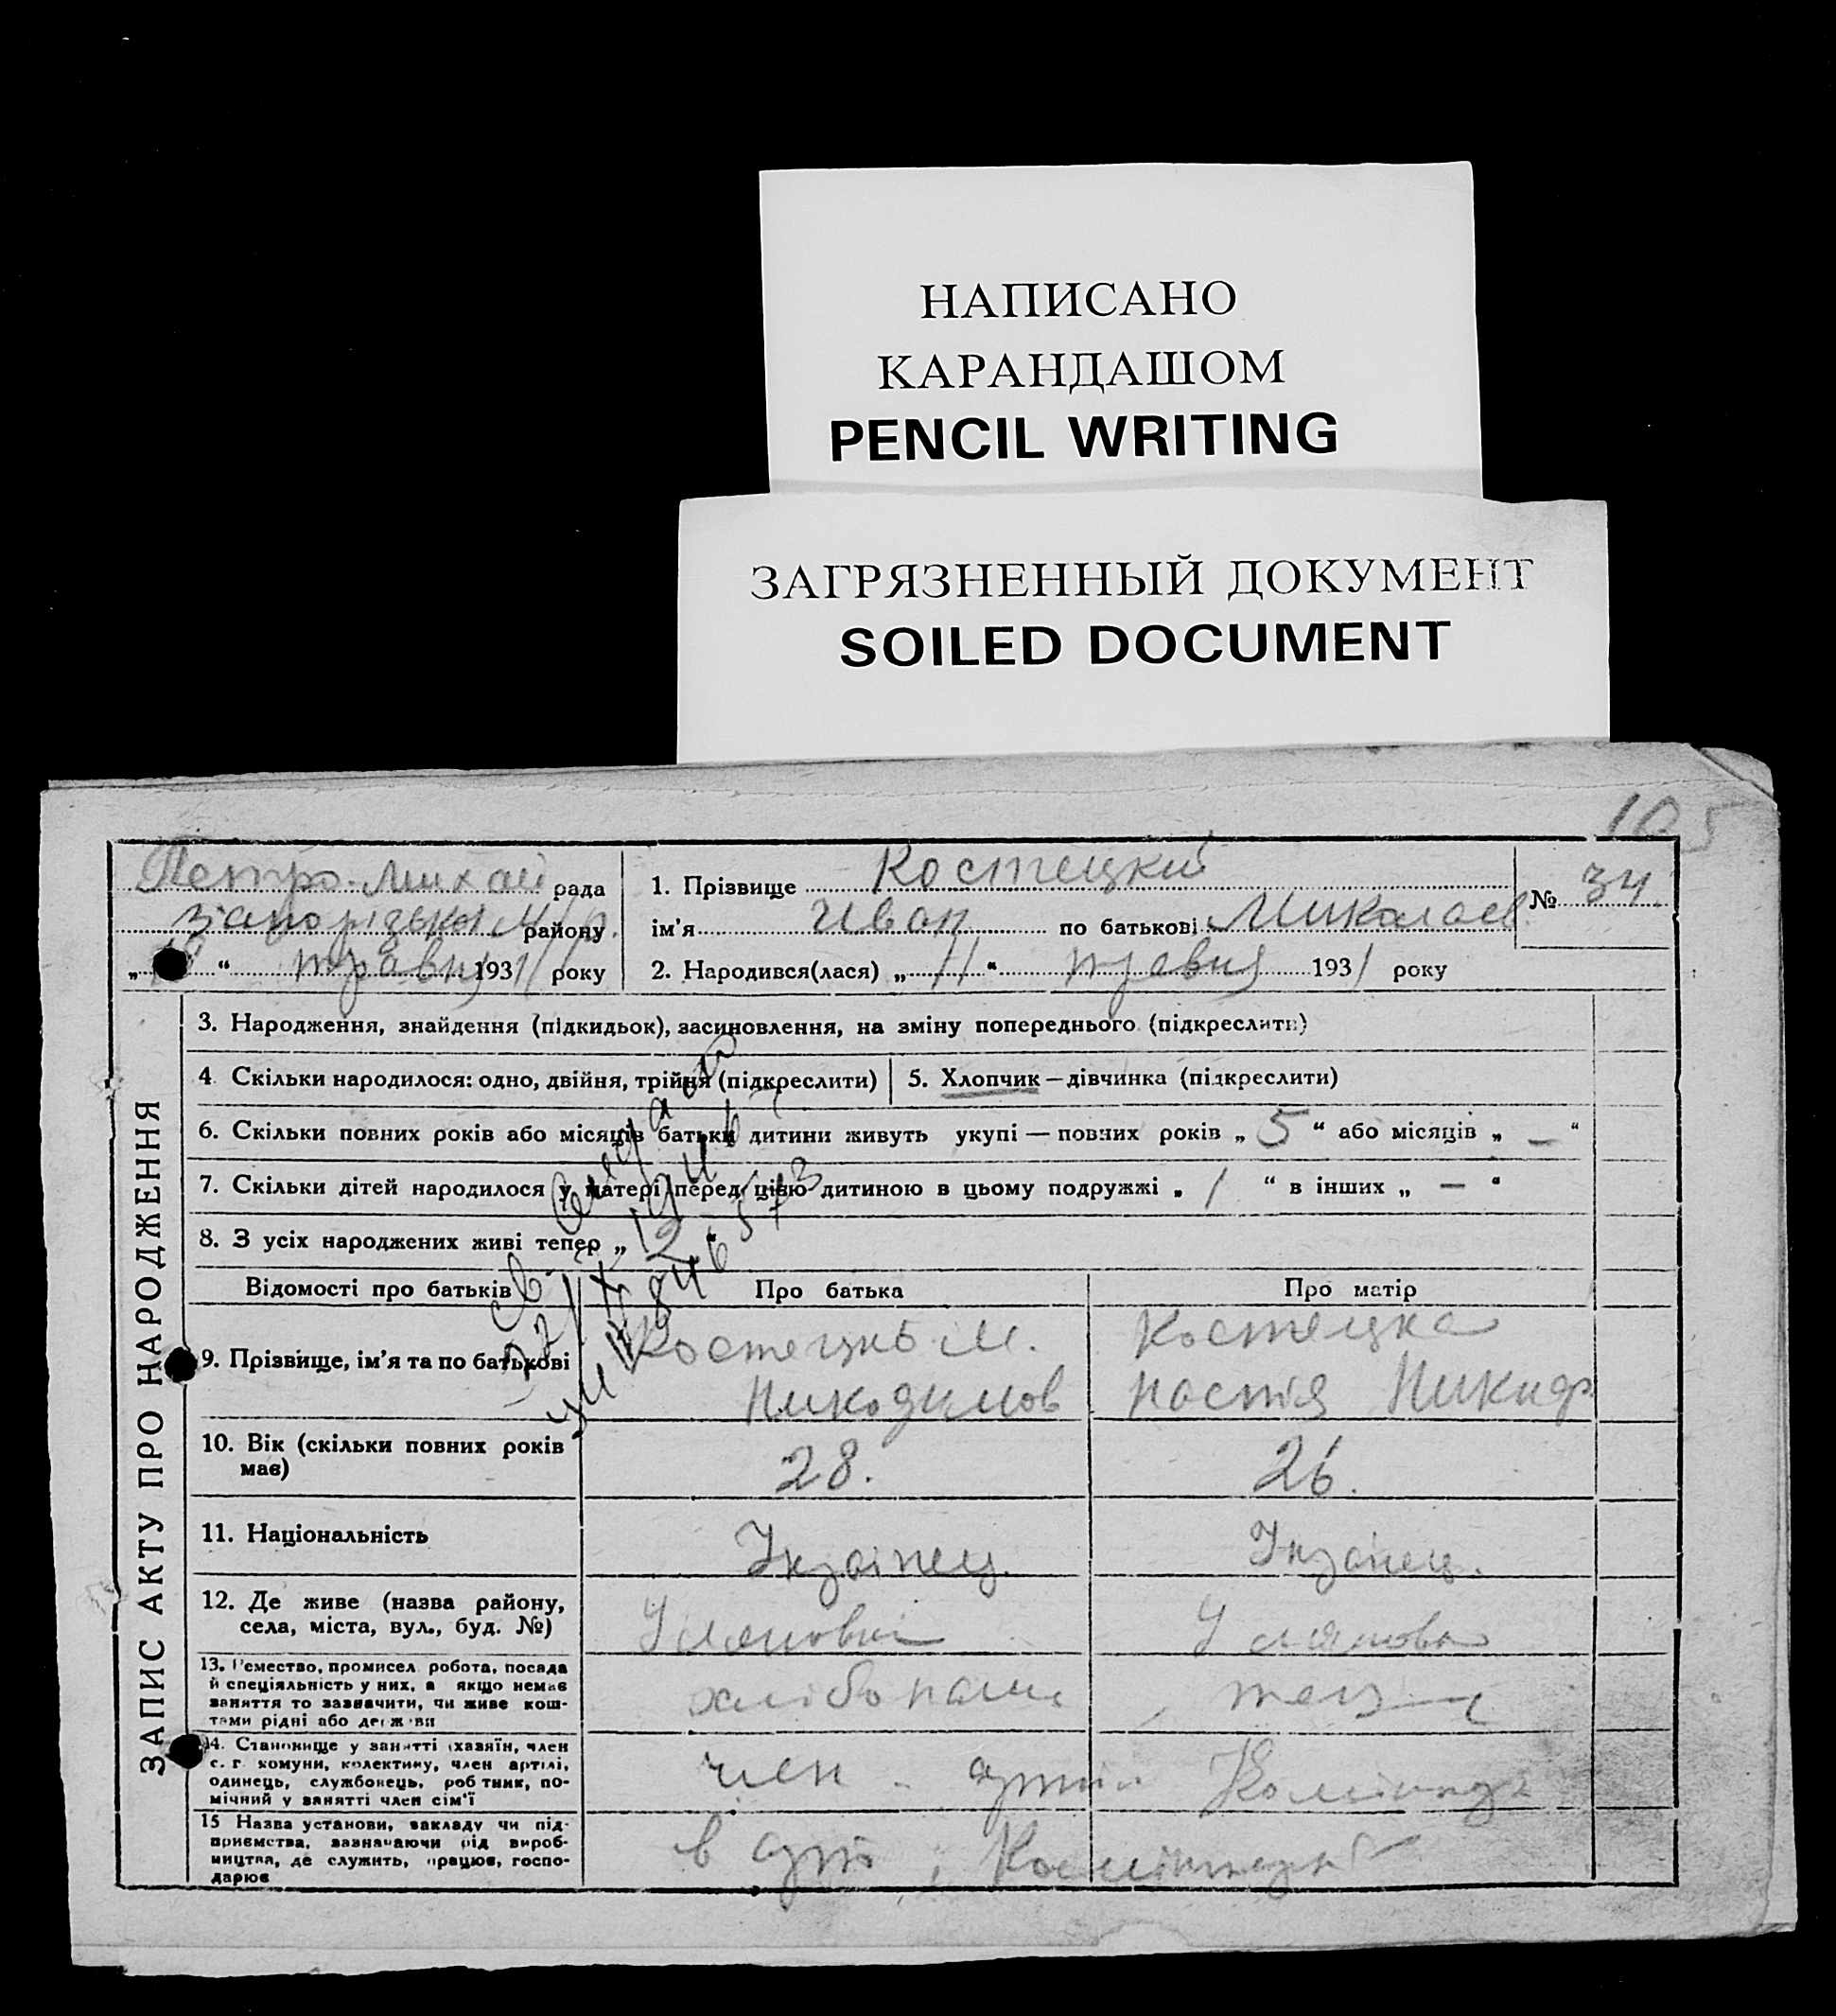 НАПИСАНО
КАРАНДАШОМ
PENCIL WRITING
ЗАГРЯЗНЕННЫЙ ДОКУМЕНТ
SOILED DOCUMENT
105
Петро-Михай рада
Запорізької М/р. району
„ “ травня 1931 року
1. Прізвище Костецкий
ім’я Иван по батькові Миколаєв
№ 34
2. Народився(лася) „ 11 “ травня 1931 року
ЗАПИС АКТУ ПРО НАРОДЖЕННЯ
3. Народження, знайдення (підкидьок), засиновлення, на зміну попереднього (підкреслити)
4 Скільки народилося: одно, двійня, трійня (підкреслити)
5. Хлопчик — дівчинка (підкреслити)
6. Скільки повних років або місяців батьки дитини живуть укупі — повних років „ 5 “ або місяців „ — “
7. Скільки дітей народилося у матері перед цією дитиною в цьому подружжі „ 1 “ в інших „ — “
8. З усіх народжених живі тепер „ 2 “
Відомості про батьків Про батька Про матір
9. Прізвище, ім’я та по батькові
Костецкь М. Костецка
Никодимов Настія Никиф
10. Вік (скільки повних років має) 28. 26.
11. Національність Українец. Українец.
12. Де живе (назва району,
села, міста, вул., буд. №)
13. Ремество, промисел робота, посада
й спеціяльність у них, а якщо немає
заняття то зазначити, чи живе кош-
тами рідні або держави
хлібопаш
14. Становище у занятті (хазяїн, член
с. г. комуни, колективу, член артілі,
одинець, службовець, робітник, по-
мічний у занятті член сім’ї
член артіл
15 Назва установи, закладу чи під-
приємства, зазначаючи рід вироб-
ництва, де служить, працює, госпо-
дарює
в арт